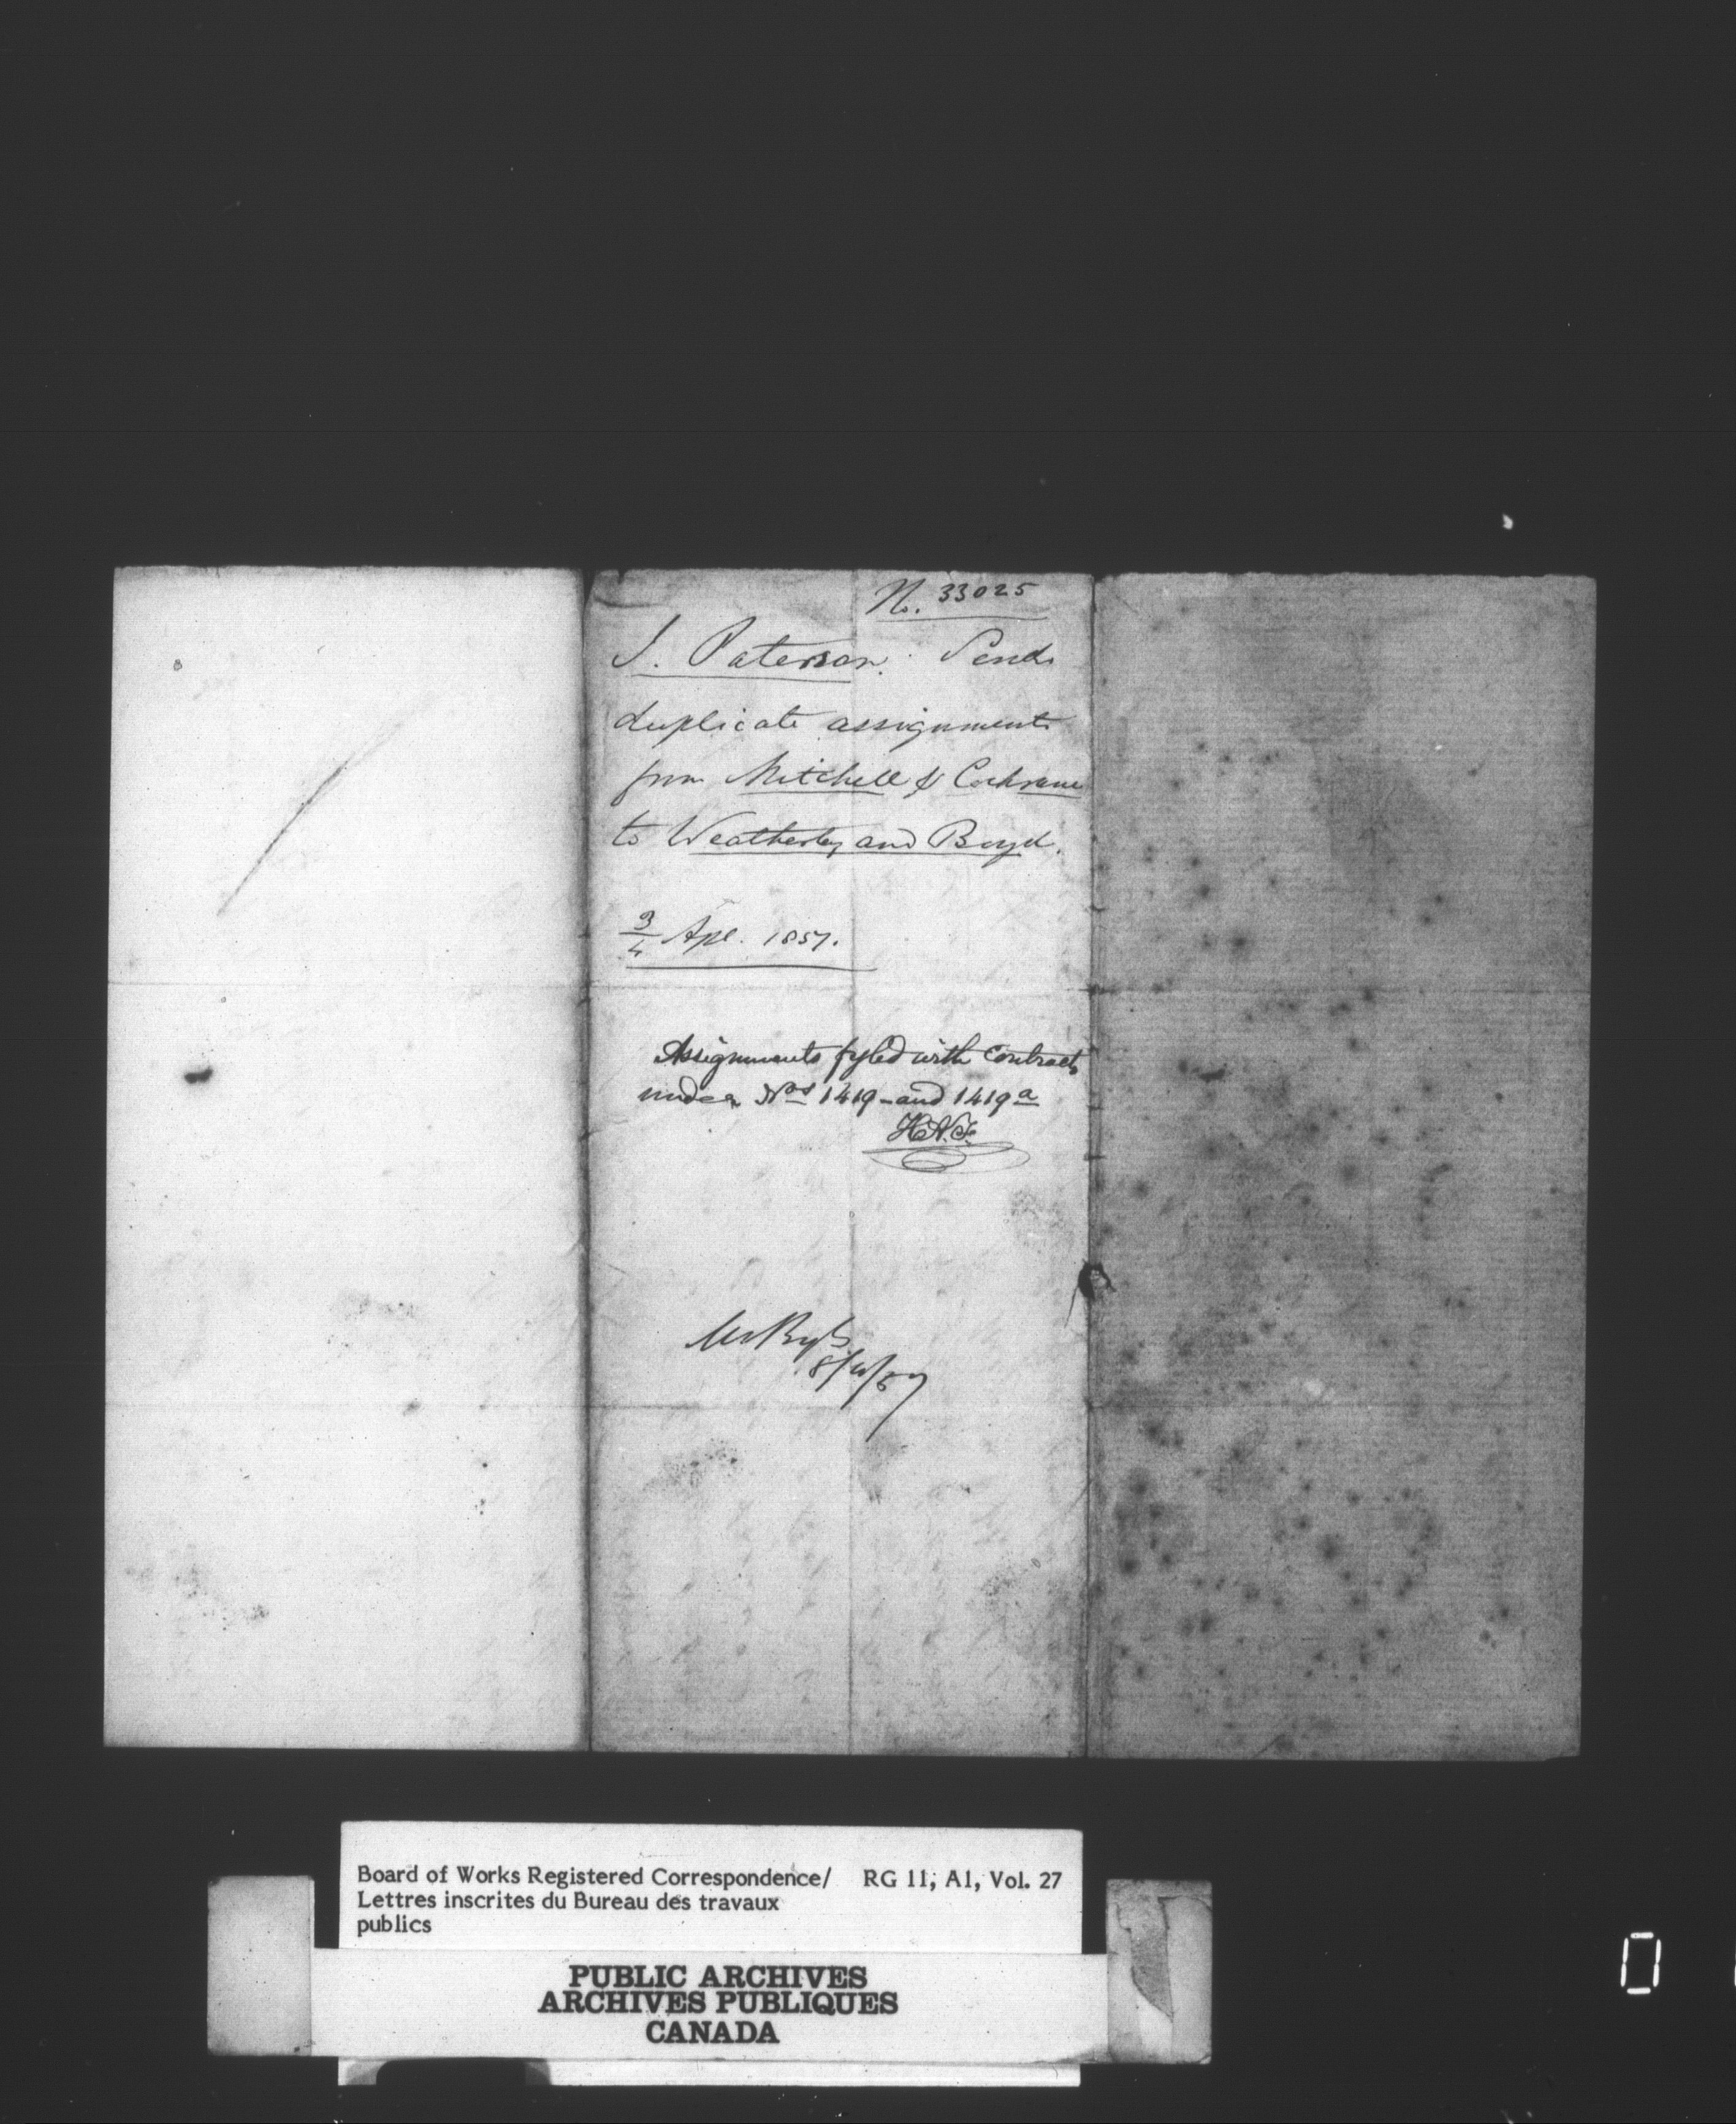 No. 33025
J. Paterson. Sends
duplicate assignments
from Mitchell & Cochrane
to Weatherley and Boyd.
3/4 Apl. 1857.
Assignments fyled with Contracts
under Nos 1419 - and 1419a
8/4/57
Board of Works Registered Correspondence/ RG 11, A1, Vol. 27
Lettres inscrites du Bureau des travaux
publics
PUBLIC ARCHIVES
ARCHIVES PUBLIQUES
CANADA
0